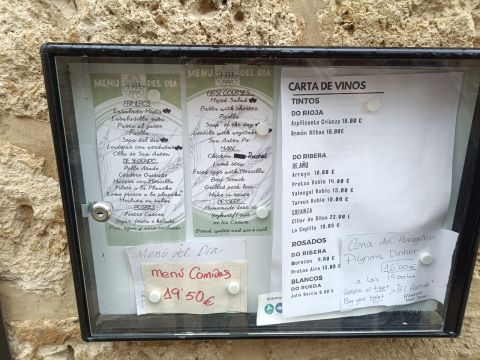 MENÚ DEL DÍA
PRIMEROS
Ensalada Mixta
Ensaladilla rusa
Pasta al queso
Paella
Sopa del día
Lentejas con verduras
Olla de San Antón
DE SEGUNDO
Pollo Asado
Cordero Guisado
Huevos con Morcilla
Filete a la Plancha
Lomo fresco a la plancha
Merluza en salsa
POSTRES
Postre Casero
Yogur, fruta o helado
MENÚ DEL DÍA
FIRST COURSES
Mixed Salad
Pasta with cheese
Paella
Soup of the day
Lentils with vegetables
San Anton Pot
MAIN
Chicken Roasted
Lamb stew
Fried eggs with Morcilla
Beef Steack
Grilled pork loin
Hake in sauce
DESSERT
Homemade dessert
Yoghurt/Fruit
or Ice Cream
Bread water and wine
CARTA DE VINOS
TINTOS
DO RIOJA
Azpilicueta Crianza 18.00 €
Ramón Bilbao 18.00€
DO RIBERA
DE AÑO
Arroyo 16.00 €
Protos Roble 14.00€
Valnogal Roble 13.00€
Tarsus Roble 19.00€
CRIANZA
Cillar de Silos 22.00 €
La Capilla 19.00 €
ROSADOS
DO RIBERA
Monzon 9.00 €
Protos Aire 13.00€
BLANCOS
DO RUEDA
Menú del Día
menú Comidas
19'50€
Cena del Peregrino
Pilgrims Dinner
16'00€
a las
19:00h
Compra el ticket
Buy your ticket